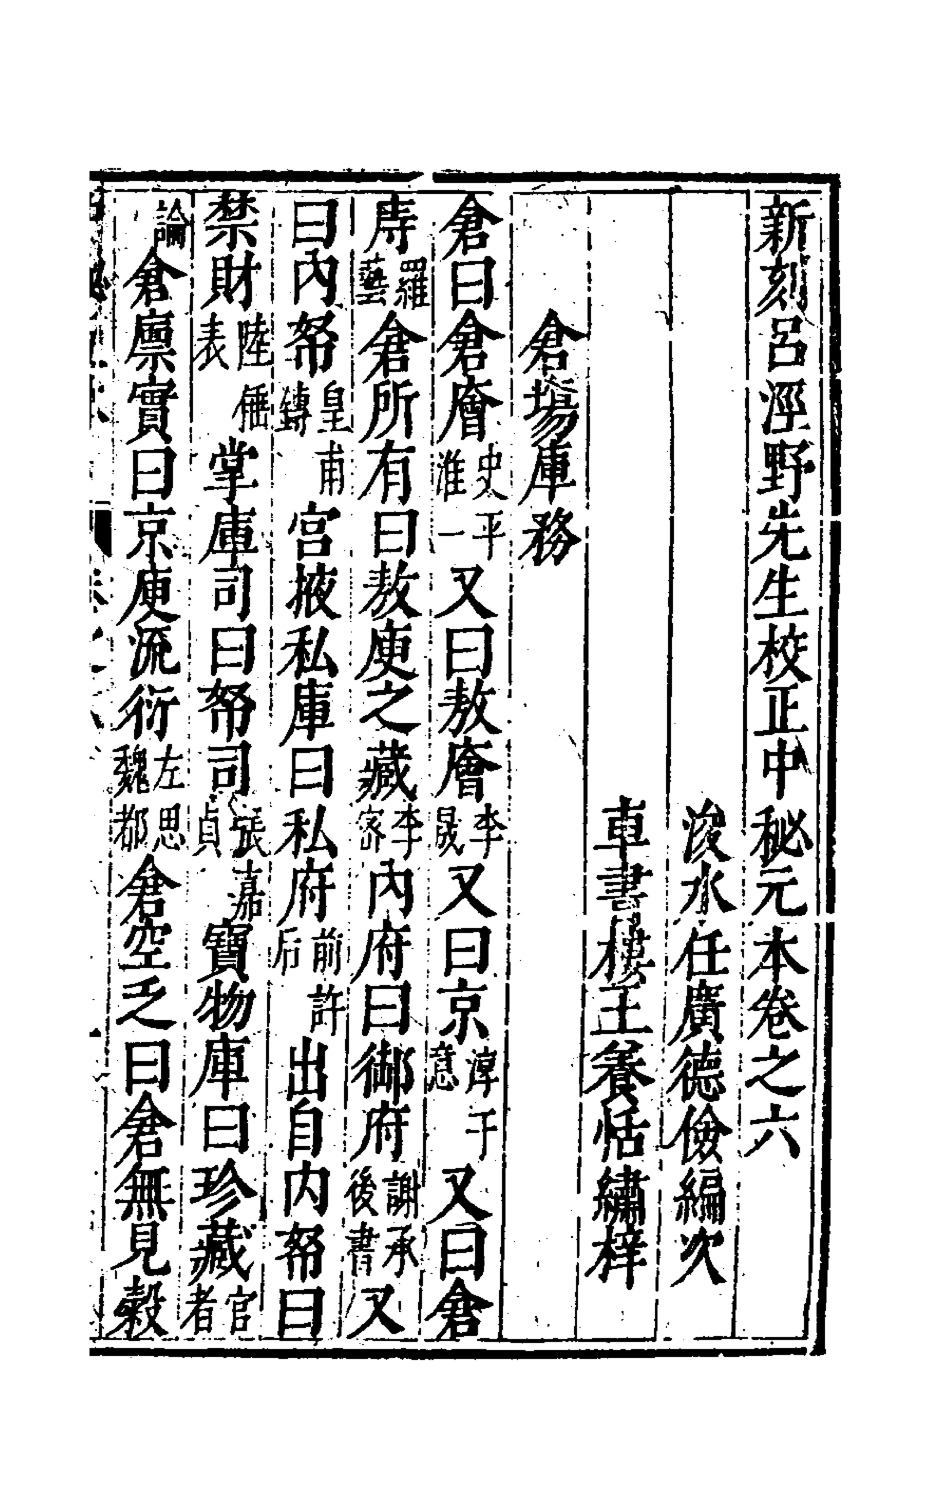 新刻呂涇野先生校正中秘元本卷之六
浚水任廣德儉編次
車書樓王養恬繡梓
倉塲庫務
倉曰倉廥史平淮一又曰敖廥李晟又曰京淳于意又曰倉
庤羅藝倉所有曰敖庾之藏李密內府曰御府謝承後書又
曰內帑皇甫鏄宮掖私庫曰私府前許后出自內帑曰
禁財陸倕表掌庫司曰帑司張嘉貞寶物庫曰珍藏官者
論倉廩實曰京庾流衍左思魏都倉空乏曰倉無見穀